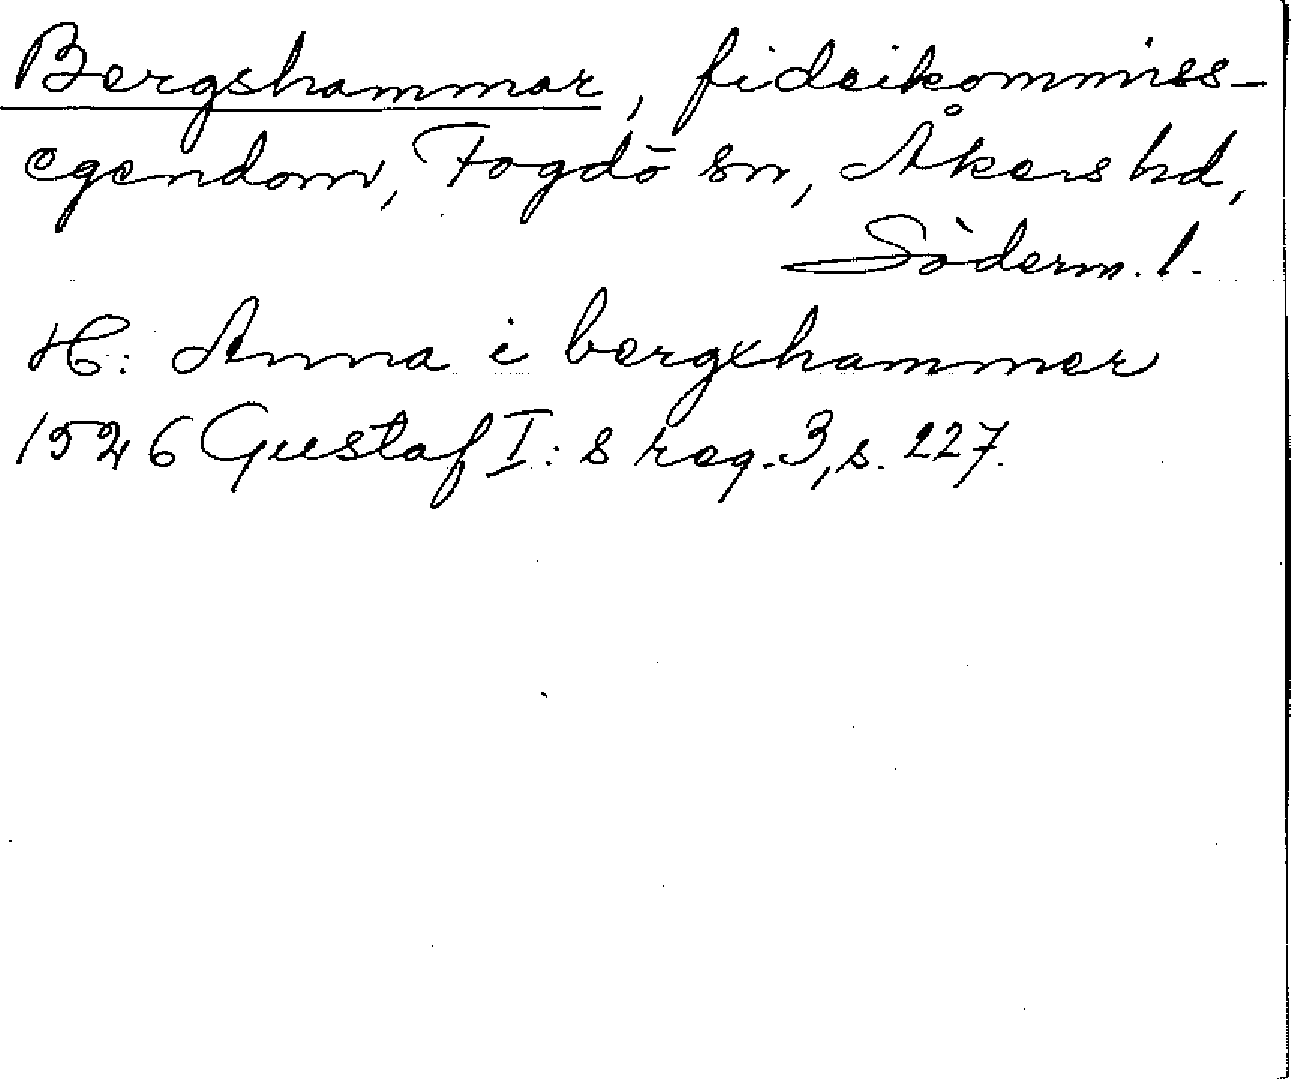 Bergshammar, fideikommiss-
egendom, Fogdö sn, Åkers hd,
Söderm. l.
H: Anna i bergxhammer
1526 Gustaf I:s reg. 3, s. 227.